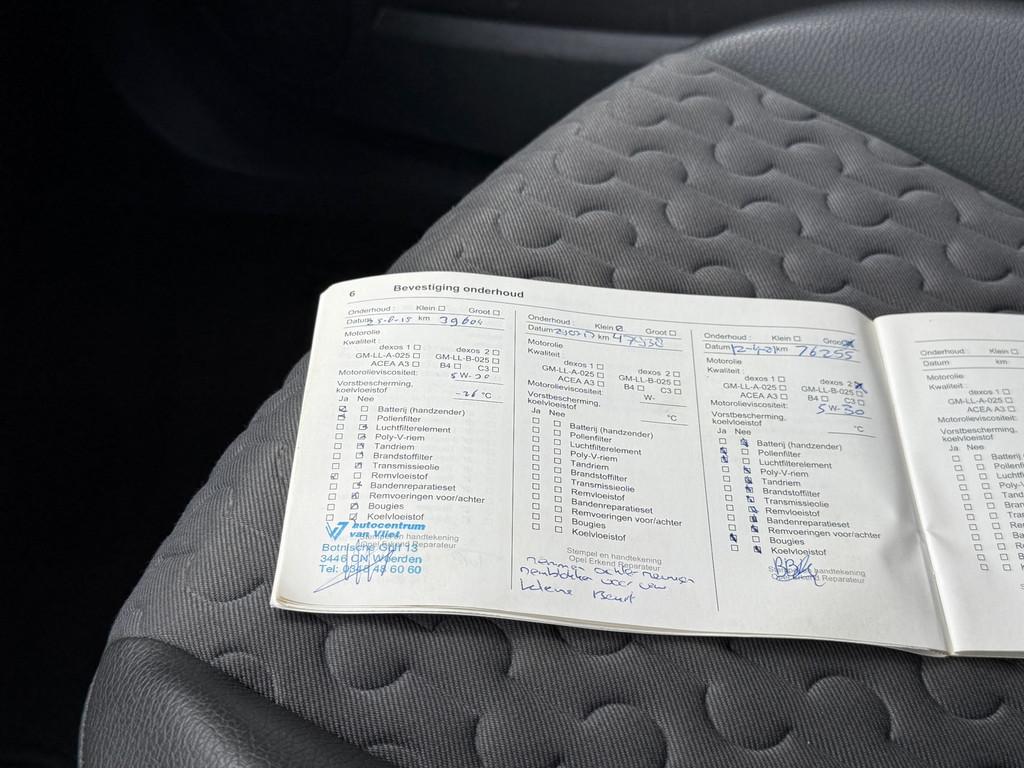 6 Bevestiging onderhoud
Onderhoud : Klein Groot
Datum km 39604
Motorolie
Kwaliteit :
dexos 1 dexos 2
GM-LL-A-025 GM-LL-B-025
ACEA A3 B4 C3
Motorolieviscositeit: 5 W-30
Vorstbescherming,
koelvloeistof -26 °C
Ja Nee
Batterij (handzender)
Pollenfilter
Luchtfilterelement
Poly-V-riem
Tandriem
Brandstoffilter
Transmissieolie
Remvloeistof
Bandenreparatieset
Remvoeringen voor/achter
Bougies
Koelvloeistof
Stempel en handtekening
Opel Erkend Reparateur
autocentrum
van Vliet
Botnische Golf 13
3446 CN Woerden
Tel: 0348 48 60 60
Onderhoud : Klein Groot
Datum km
Motorolie
Kwaliteit :
dexos 1 dexos 2
GM-LL-A-025 GM-LL-B-025
ACEA A3 B4 C3
Motorolieviscositeit: W-
Vorstbescherming,
koelvloeistof °C
Ja Nee
Batterij (handzender)
Pollenfilter
Luchtfilterelement
Poly-V-riem
Tandriem
Brandstoffilter
Transmissieolie
Remvloeistof
Bandenreparatieset
Remvoeringen voor/achter
Bougies
Koelvloeistof
Stempel en handtekening
Opel Erkend Reparateur
Onderhoud : Klein Groot
Datum km 76255
Motorolie
Kwaliteit :
dexos 1 dexos 2
GM-LL-A-025 GM-LL-B-025
ACEA A3 B4 C3
Motorolieviscositeit: 5W-30
Vorstbescherming,
koelvloeistof °C
Ja Nee
Batterij (handzender)
Pollenfilter
Luchtfilterelement
Poly-V-riem
Tandriem
Brandstoffilter
Transmissieolie
Remvloeistof
Bandenreparatieset
Remvoeringen voor/achter
Bougies
Koelvloeistof
Stempel en handtekening
Opel Erkend Reparateur
Onderhoud : Klein
Datum km
Motorolie
Kwaliteit :
dexos 1
GM-LL-A-025
ACEA A3
Motorolieviscositeit:
Vorstbescherming,
koelvloeistof
Ja Nee